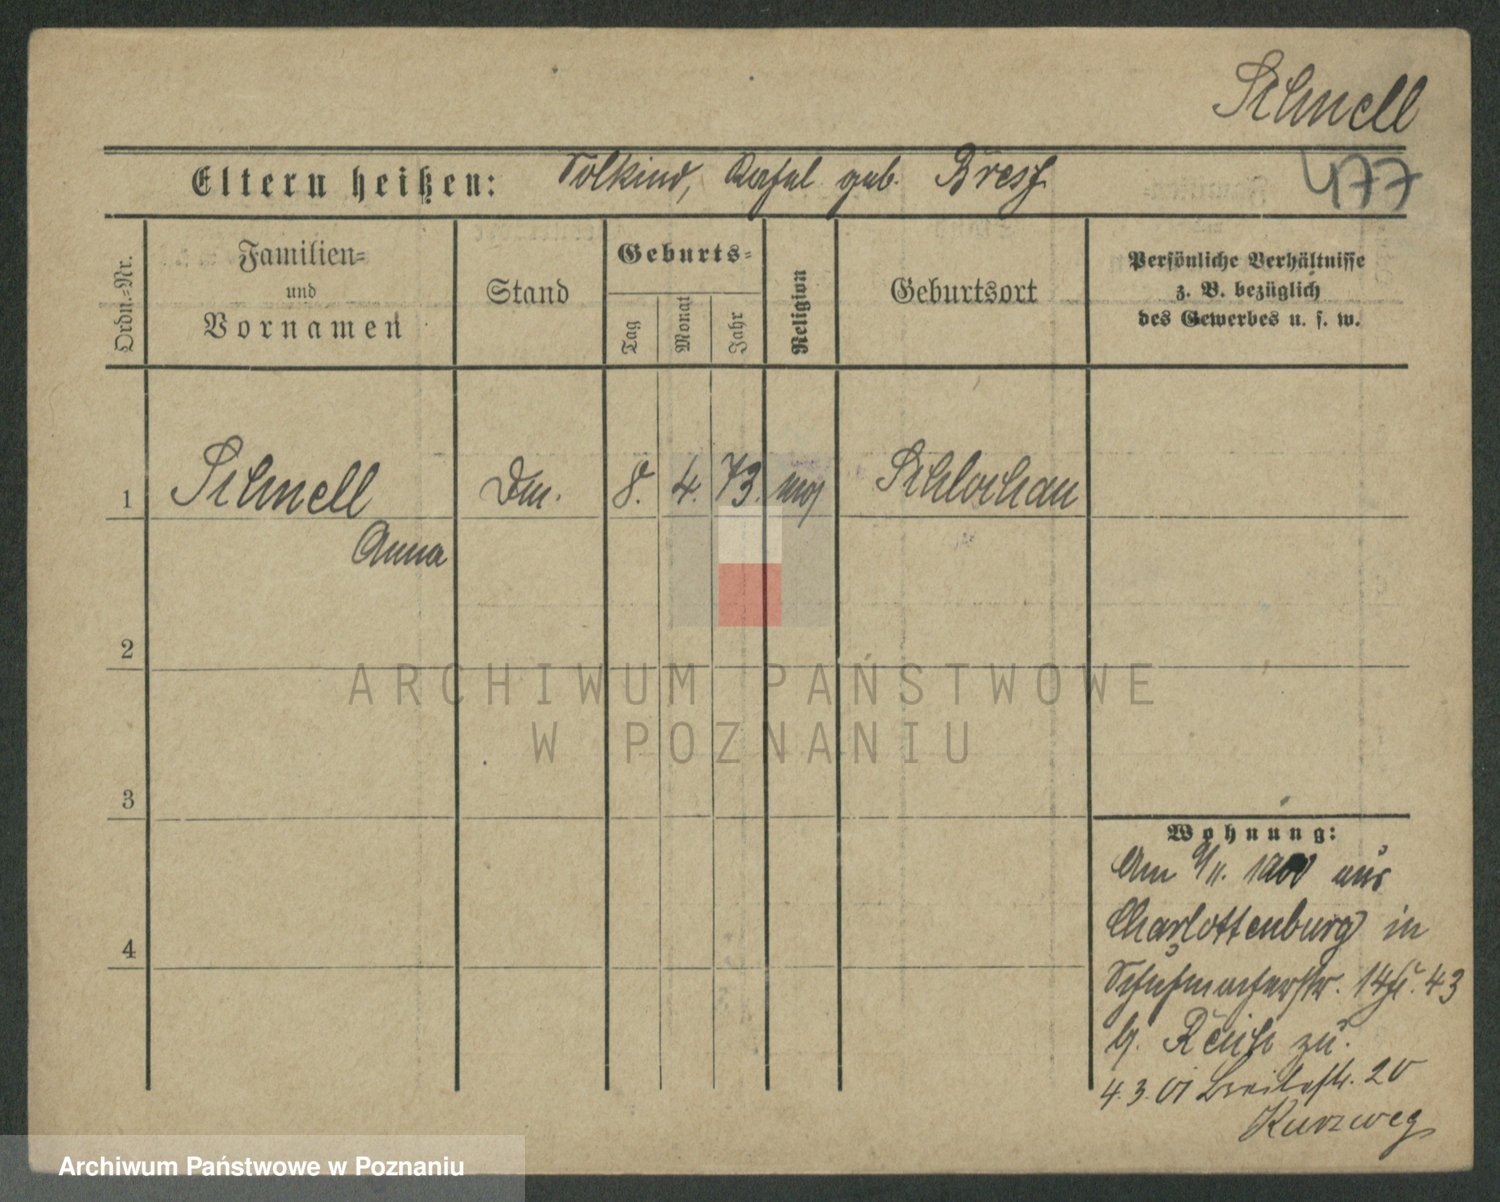 Schnell
477
Eltern heißen: Volkind, Rafal geb. Bresch
Ordn.=Nr.
Familien=
und
Vornamen
Stand
Geburts=
Tag
Monat
Jahr
Religion
Geburtsort
Persönliche Verhältnisse
z. B. bezüglich
des Gewerbes u. s. w.
1 Schnell Dm. 8. 4. 73. mos Schlochau
Anna
2
3
4
Wohnung:
Am 9/11. 1900 aus
Charlottenburg in
Schuhmacherstr. 14
b. zu.
4.3.01 Breitestr. 20
Kurzweg
ARCHIWUM PAŃSTWOWE
W POZNANIU
Archiwum Państwowe w Poznaniu